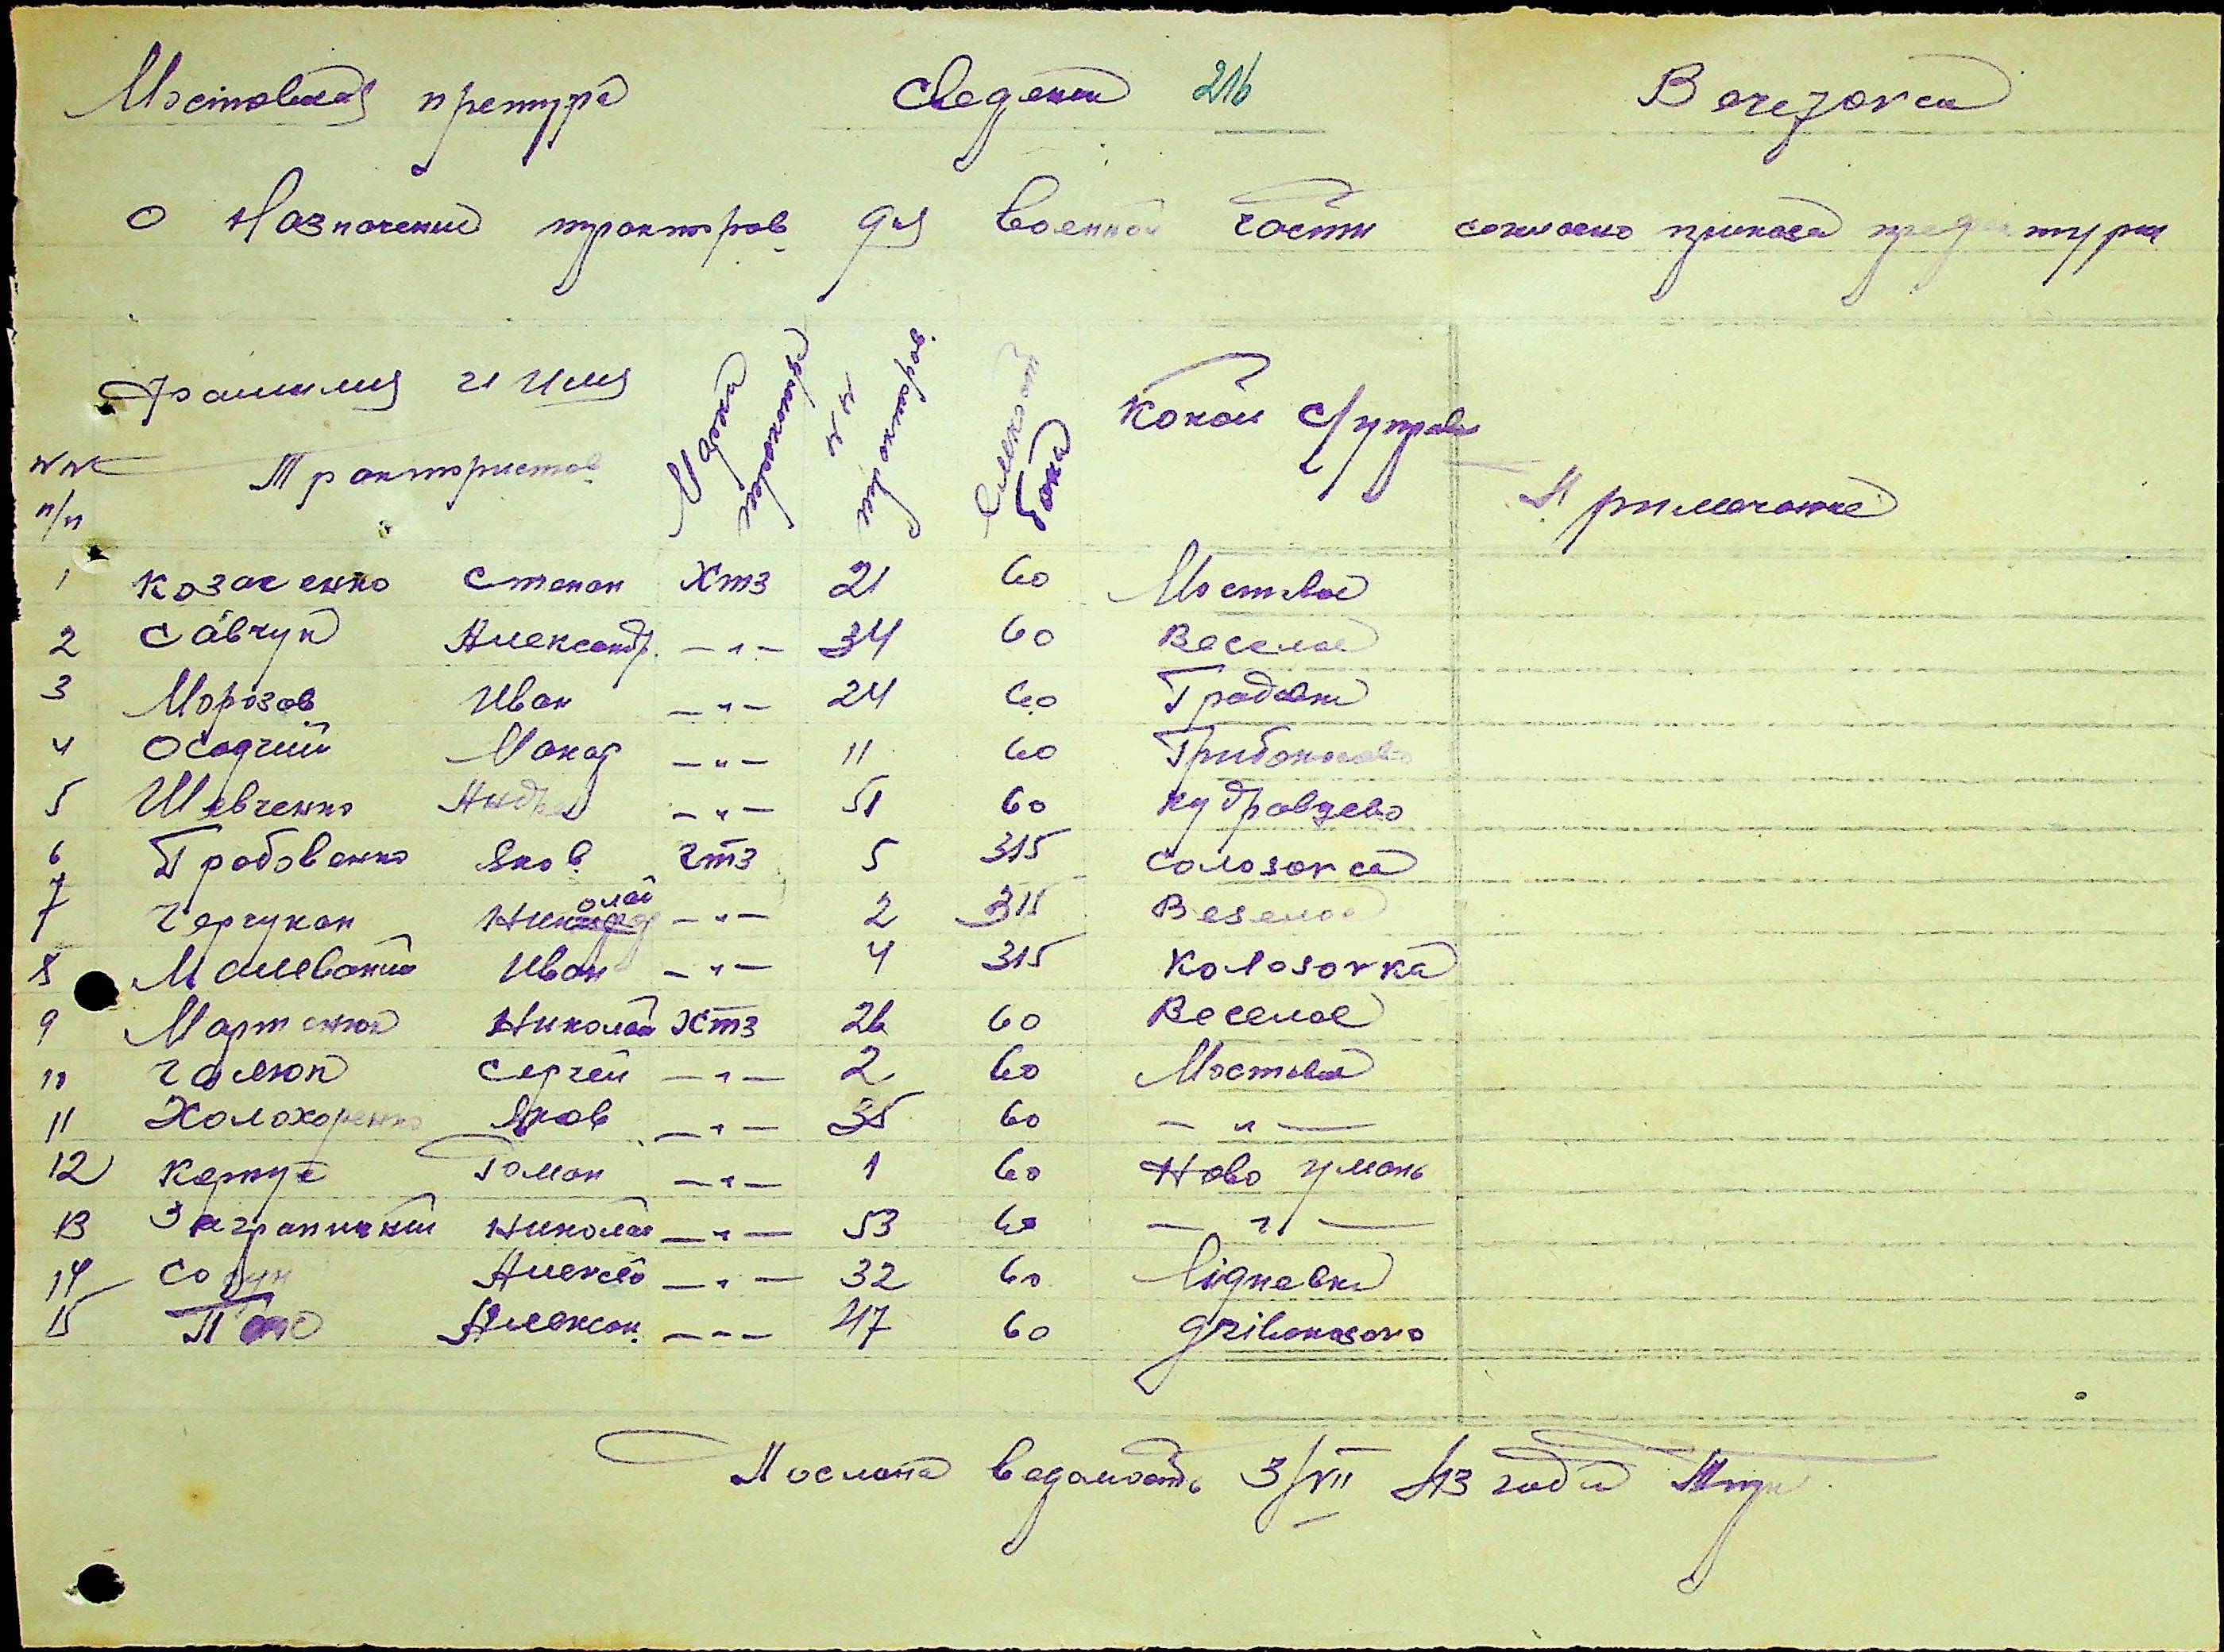 Мостовская претура Сведения 216 Berezovca
о назначении тракторов для военной части согласно приказа префектуры
Фамилия и имя Марка трактора №№ тракторов Емкость бака Какой с/управы
№№ п/п Трактористов Примечание
1 Козаченко Степан ХТЗ 21 60 Мостовое
2 Савчук Александр. —"— 34 60 Веселое
3 Морозов Иван —"— 24 60 Градовки
4 Осадчий Макар —"— 11 60 Грибоносово
5 Шевченко Андрей —"— 51 60 Кудрявцево
6 Грабованко Яков ЧТЗ 5 315 Colosovca
7 Черчукан Николай —"— 2 315 Веселое
8 Малеваний Иван —"— 4 315 Kolosovka
9 Мартенюк Николай ХТЗ 26 60 Веселое
10 Галюк Сергей —"— 2 60 Мостовое
11 Холохоренко Яков —"— 35 60 —"—
12 Роман —"— 1 60 Ново Умань
13 Заграничний Николай —"— 53 60 —"—
14 Алексей —"— 32 60
15 Алексан. —"— 47 60 Gribonosovo
Послана ведомость 3/VII 43 года